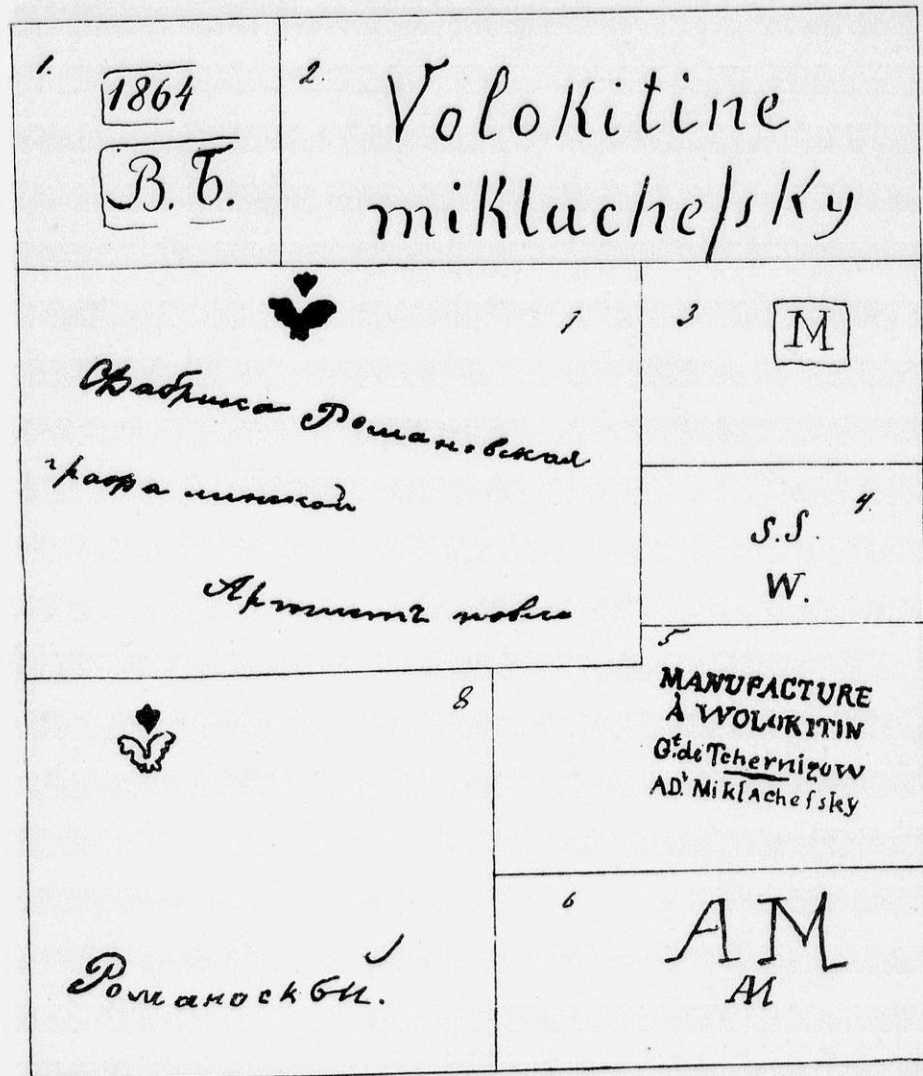 1.
1864
В.Б.
2.
Volokitine
miklachefsky
7
Фабрика Романовская
графа
Артистъ
3
M
4.
S.S.
W.
5
MANUFACTURE
À WOLOKITIN
Gt. de Tchernigow
AD. Miklachefsky
8
Романоскби.
6
AM
AM